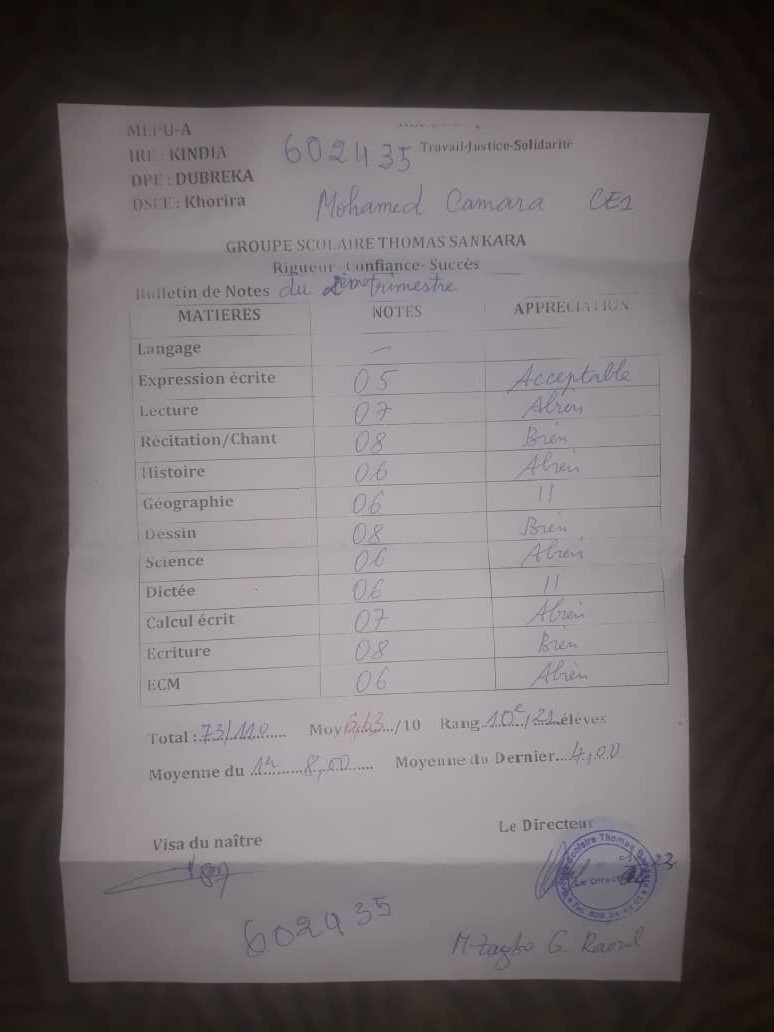 MEPU-A
IRE : KINDIA
602435
Travail-Justice-Solidarité
DPE : DUBREKA
DSEE : Khorira
Mohamed Camara CE1
GROUPE SCOLAIRE THOMAS SANKARA
Rigueur- Confiance- Succès
Bulletin de Notes du 2ème trimestre
MATIERES NOTES APPRECIATION
Langage —
Expression écrite 05 Acceptable
Lecture 07 Abien
Récitation/Chant 08 Bien
Histoire 06 Abien
Géographie 06 //
Dessin 08 Bien
Science 06 Abien
Dictée 06 //
Calcul écrit 07 Abien
Ecriture 08 Bien
ECM 06 Abien
Total : 73/110 Moy 6,63 /10 Rang 10e / 21 élèves
Moyenne du 1er 8,00 Moyenne du Dernier 4,00
Le Directeur
Visa du naître
Scolaire Thomas
Le Directeur
602435
G. Raoul